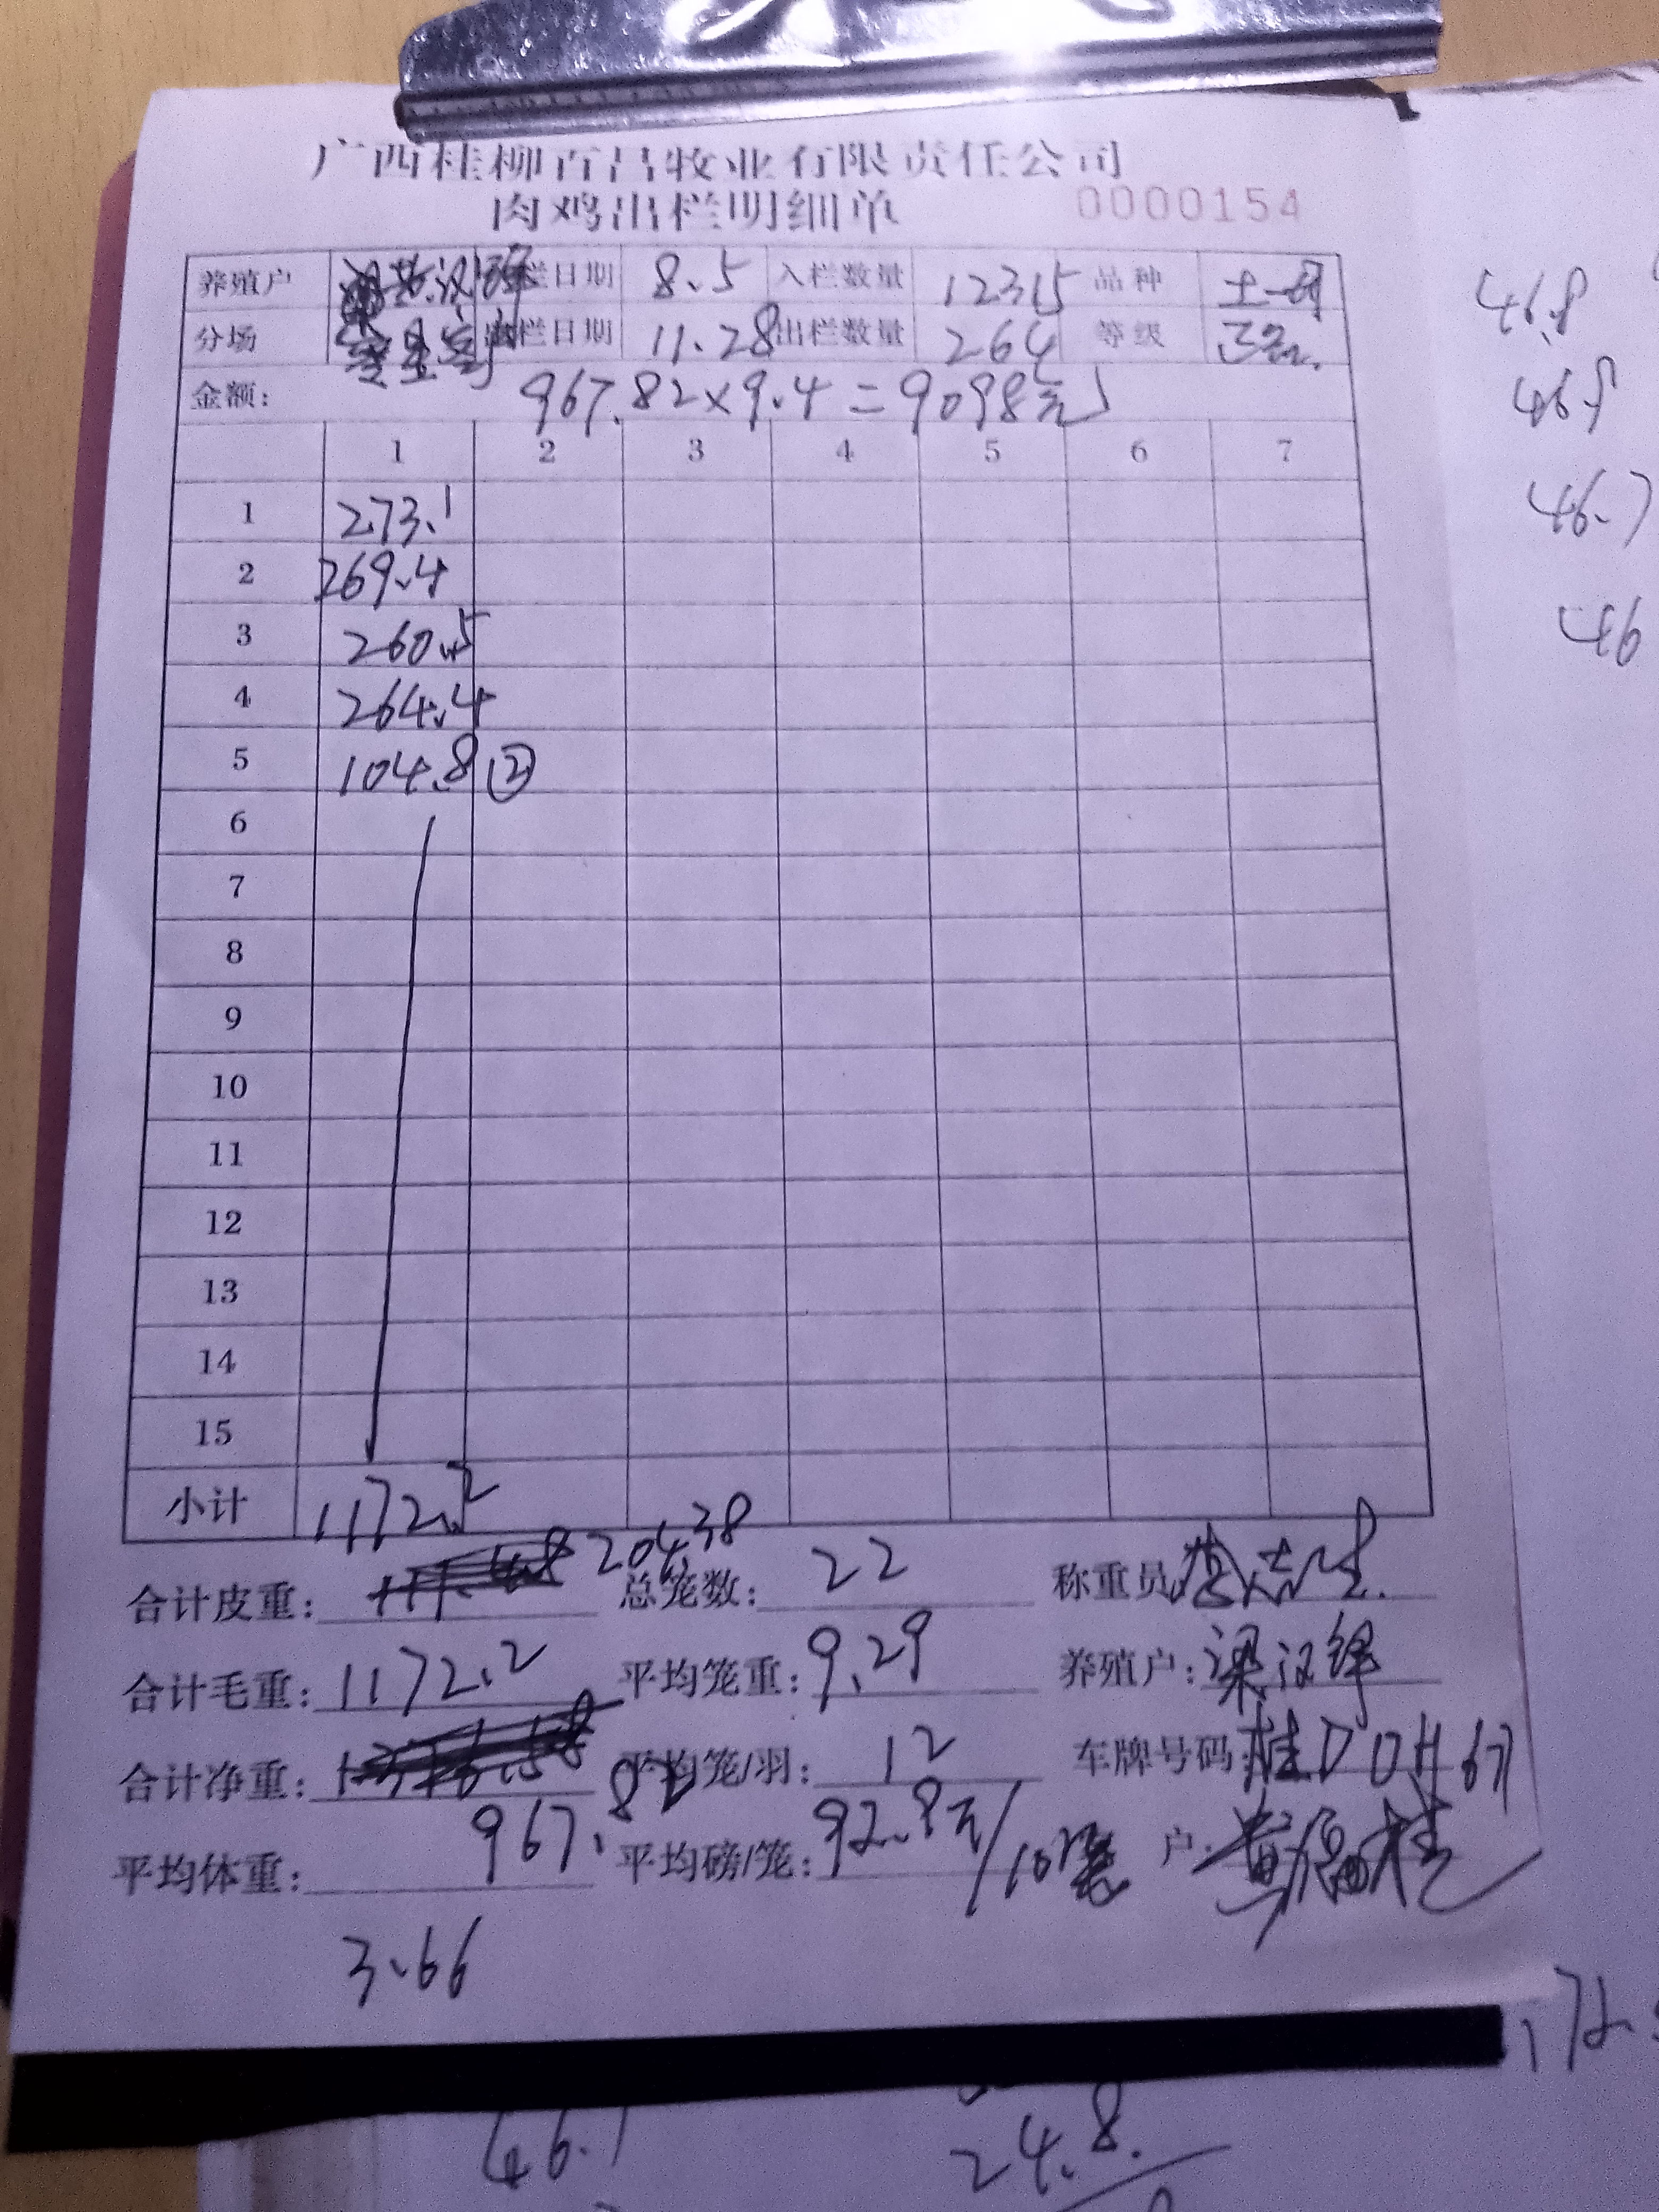 广西桂柳百昌牧业有限责任公司
肉鸡出栏明细单 0000154
养殖户 栏日期 8.5 入栏数量 12315 品种 土一
分场 栏日期 11.28 出栏数量 264 等级 正
金额: 967.82×9.4=9098元
1 2 3 4 5 6 7
1 273.1
2 269.4
3 260.5
4 264.4
5 104.8 ②
6
7
8
9
10
11
12
13
14
15
小计 1172.2
合计皮重: 204.38 总笼数: 22 称重员
合计毛重: 1172.2 平均笼重: 9.29 养殖户: 梁汉锋
合计净重: 967.82 平均笼/羽: 12 车牌号码 桂D0H671
平均体重: 3.66 平均磅/笼: 92.9元/10 户:
46.8
46.9
46.7
46
172.
46.1
24.8